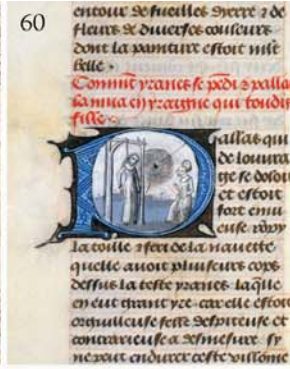 60
entour de fueilles dyerre z de
fleurs de diuerses couleurs
dont la painture estoit mlt
belle.
Comment yranes se pendi z pallas
la mua en yraigne qui tousiours
fille.
Pallas qui
de louura
ge se doloit
et estoit
fort enui
euse rompy
la toille z feri de la nauette
quelle auoit plusieurs cops
dessus la teste yranes laqlle
en eut grant yre car elle estoit
orguilleuse felle despiteuse et
contrarieuse a desmesure sy
ne peut endurer ceste villonie